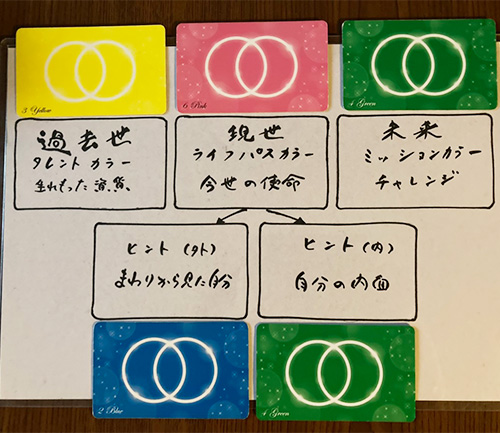 3 Yellow
6 Pink
4 Green
過去世
タレントカラー
生れもった資質、
現世
ライフパスカラー
今世の使命
未来
ミッションカラー
チャレンジ
ヒント(外)
まわりから見た自分
ヒント(内)
自分の内面
2 Blue
4 Green